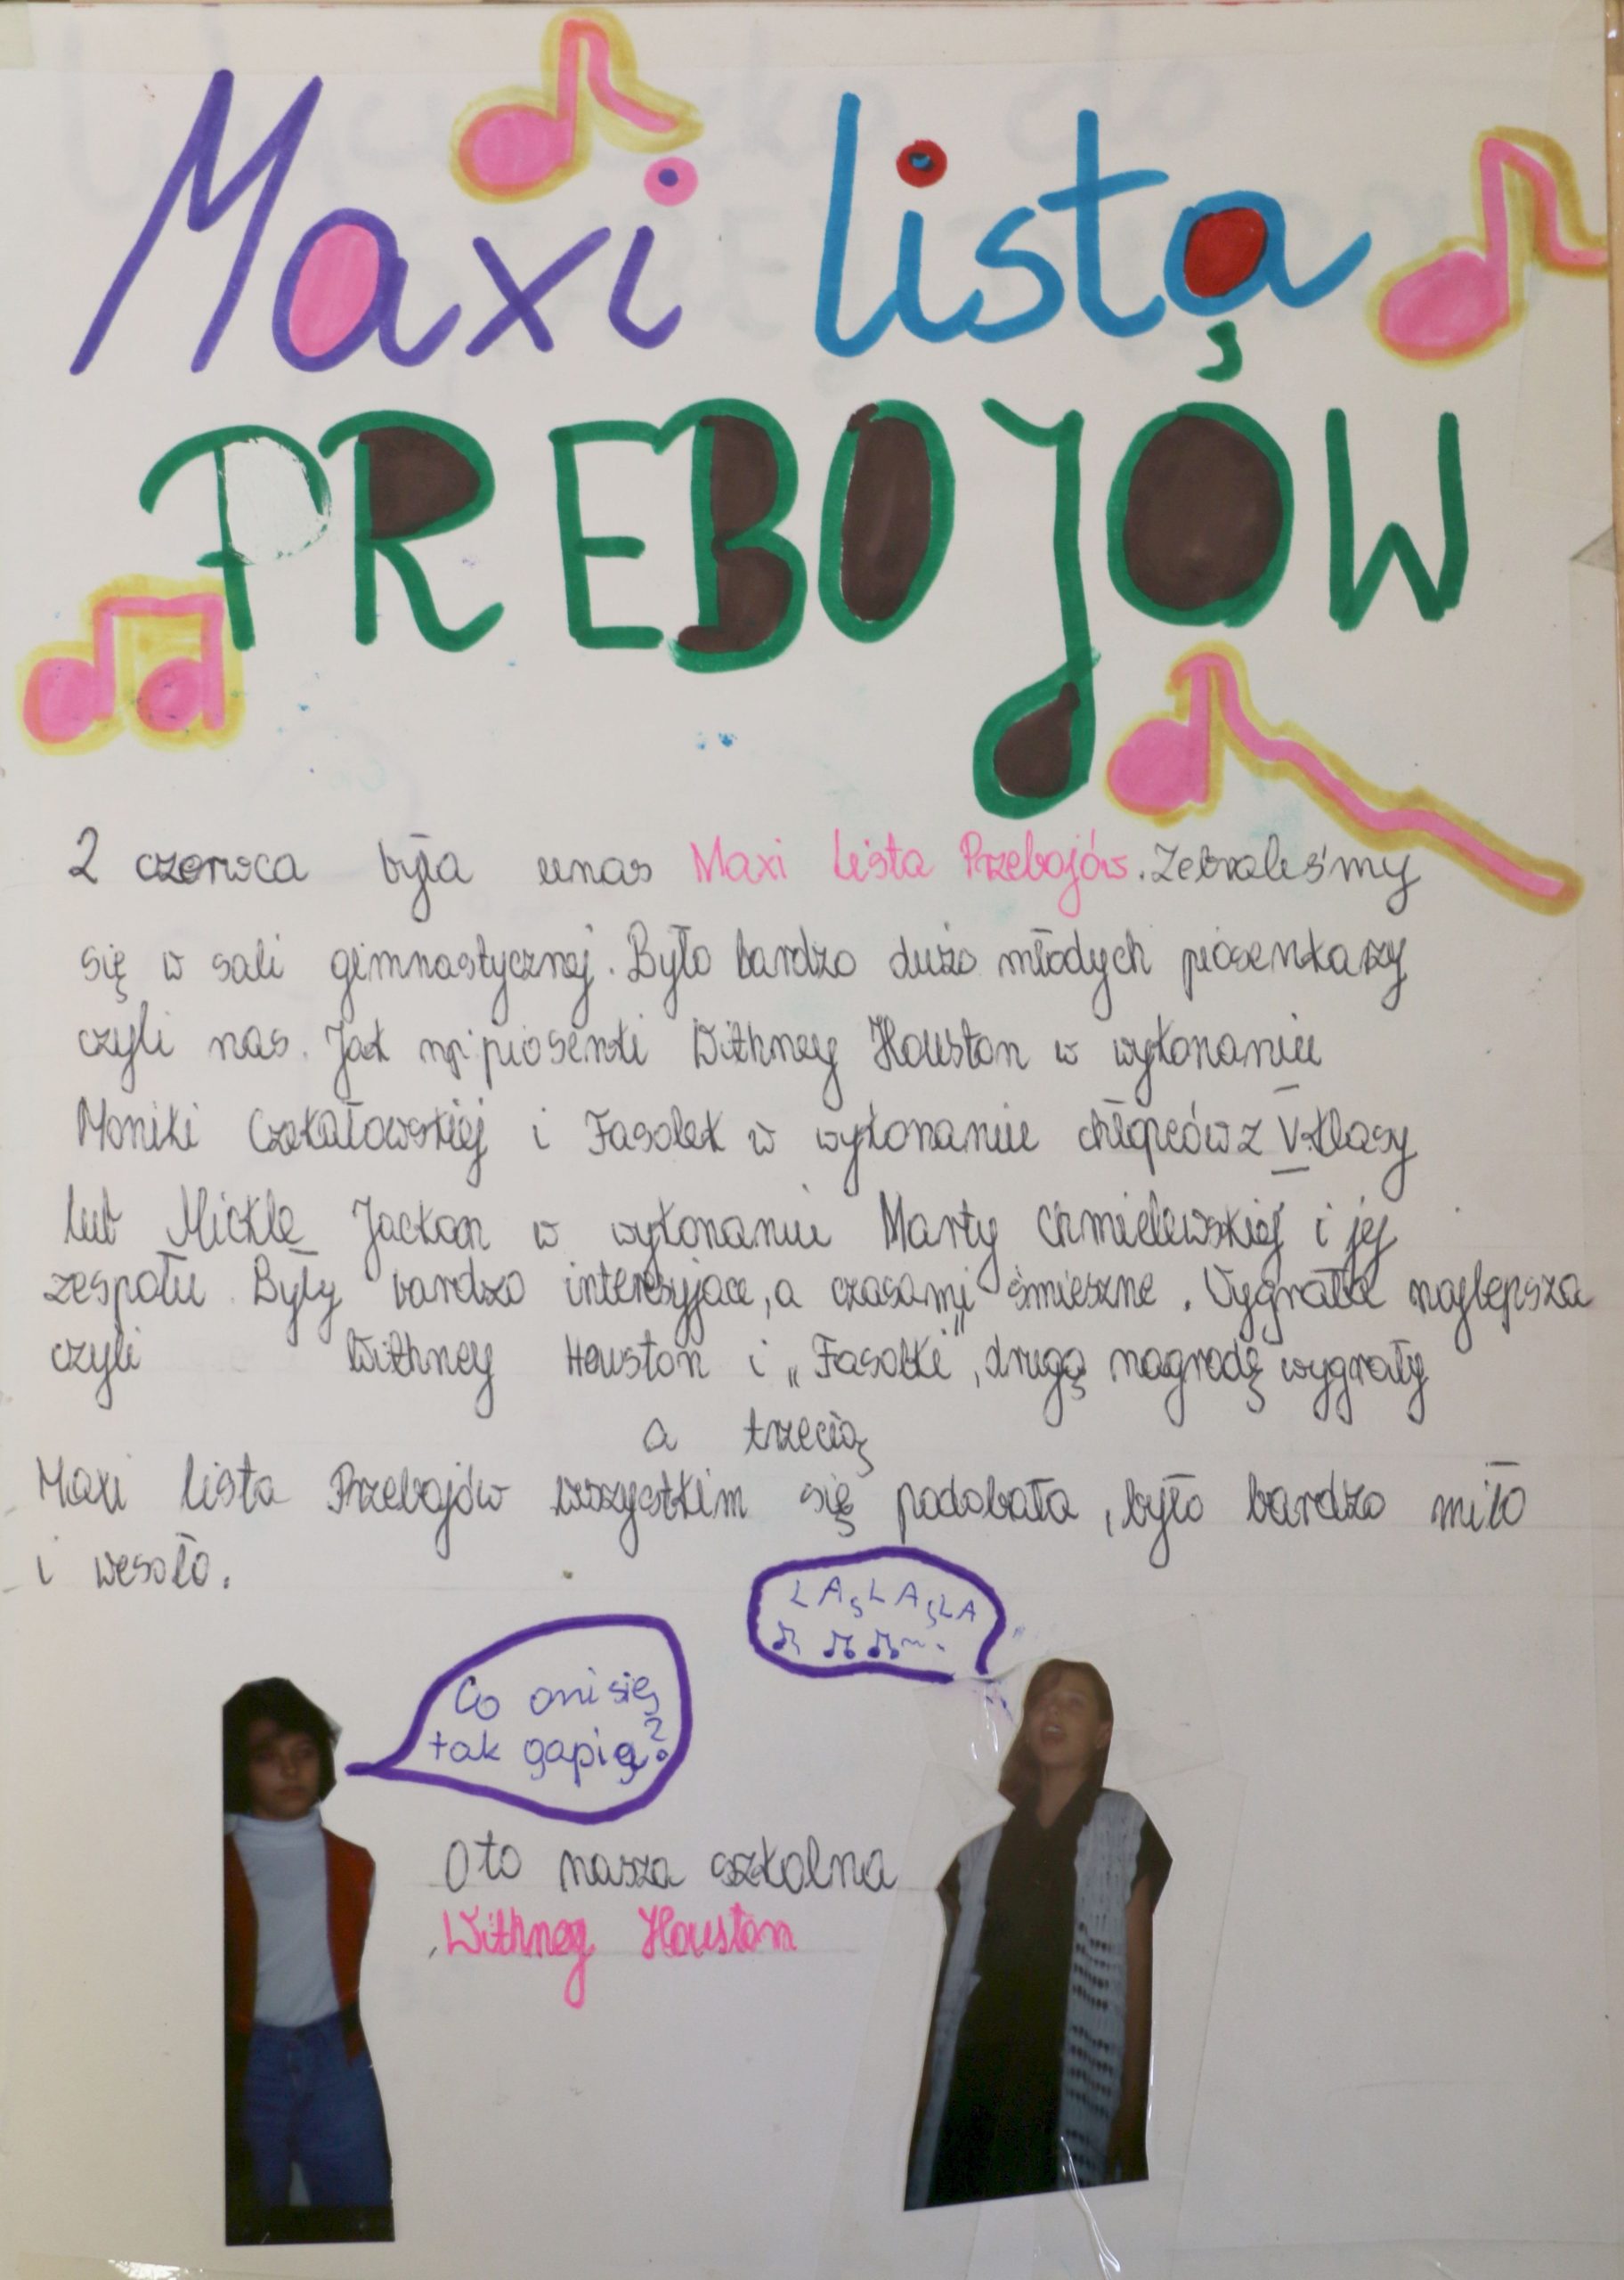 Maxi lista
PREBOJÓW
2 czerwca była unas Maxi lista Przebojów. Zebraliśmy
się w sali gimnastycznej. Było bardzo dużo młodych piosenkaszy
czyli nas. Jak np. piosenki Withney Houston w wykonaniu
Moniki Czekałowskiej i Fasolek w wykonaniu chłopców z V klasy
lub Mickle Jackon w wykonaniu Marty Chmielewskiej i jej
zespołu. Były bardzo interesyjace, a czasami śmieszne. Wygrała najlepsza
czyli Withney Houston i „Fasolki", drugą nagrodę wygrały
a trzecią
Maxi lista Przebojów wszystkim się podobała, było bardzo miło
i wesoło.
LA, LA, LA
Co oni się
tak gapią?
Oto nasza szkolna
Withney Houston